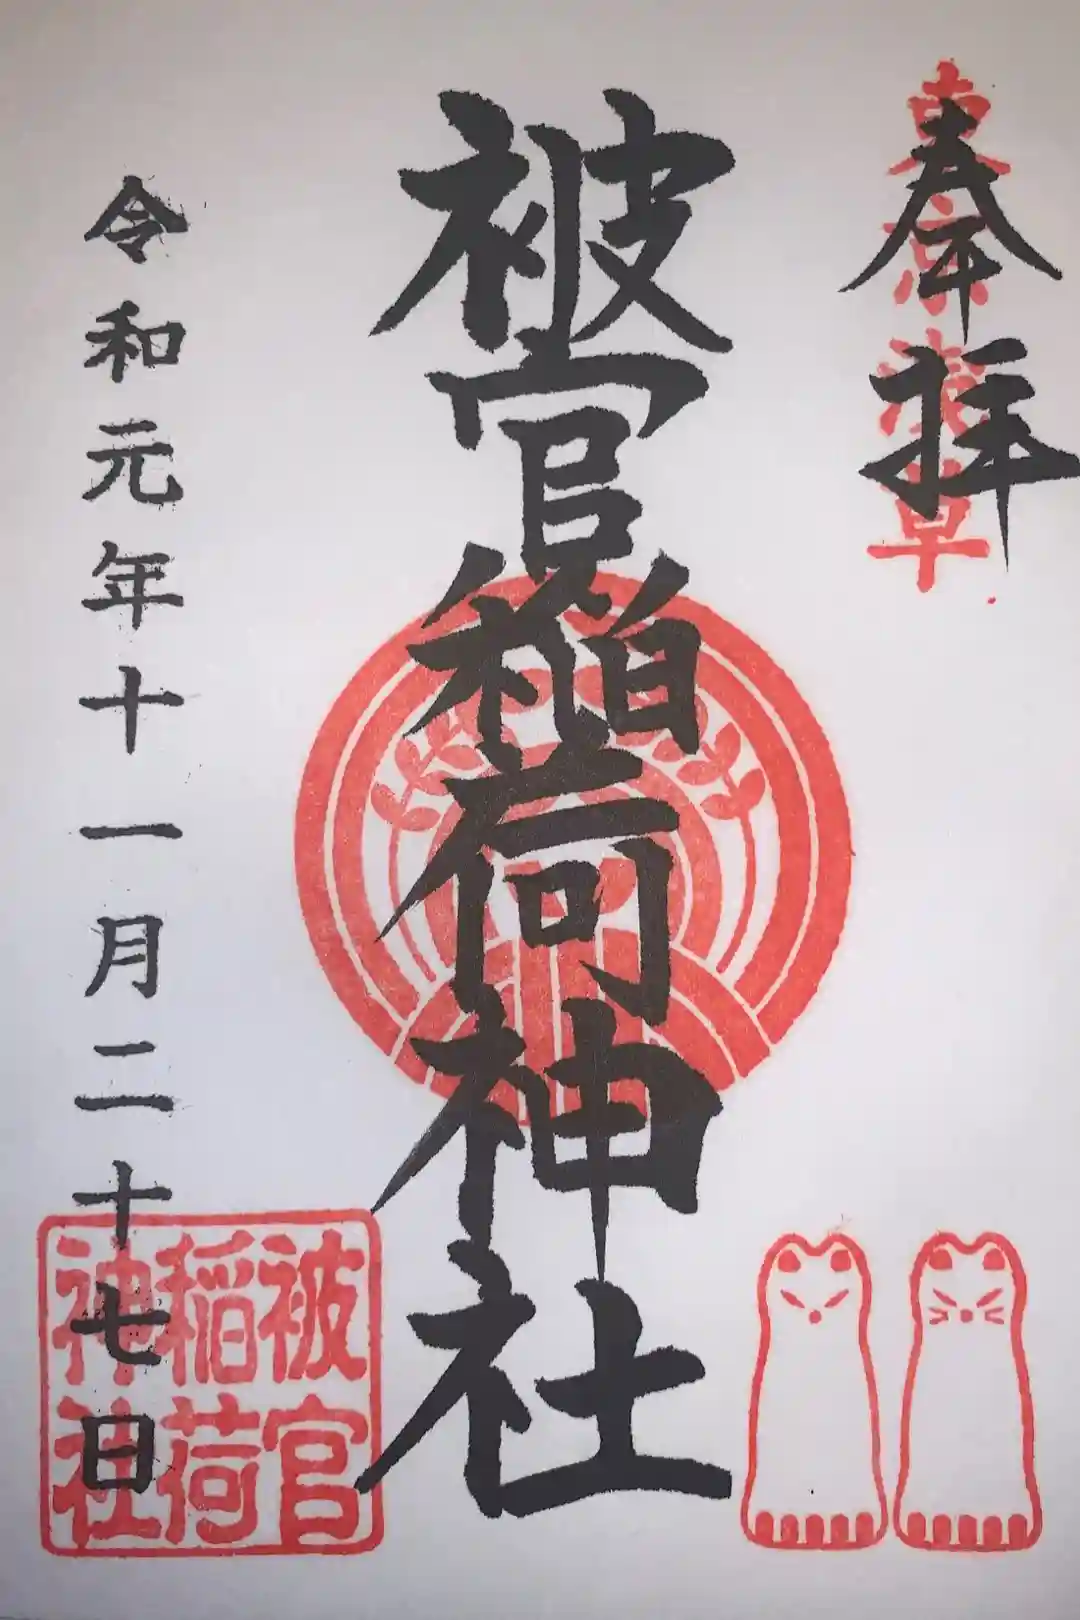 奉拝
東京浅草
被官稲荷神社
令和元年十一月二十七日
被官
稲荷
神社